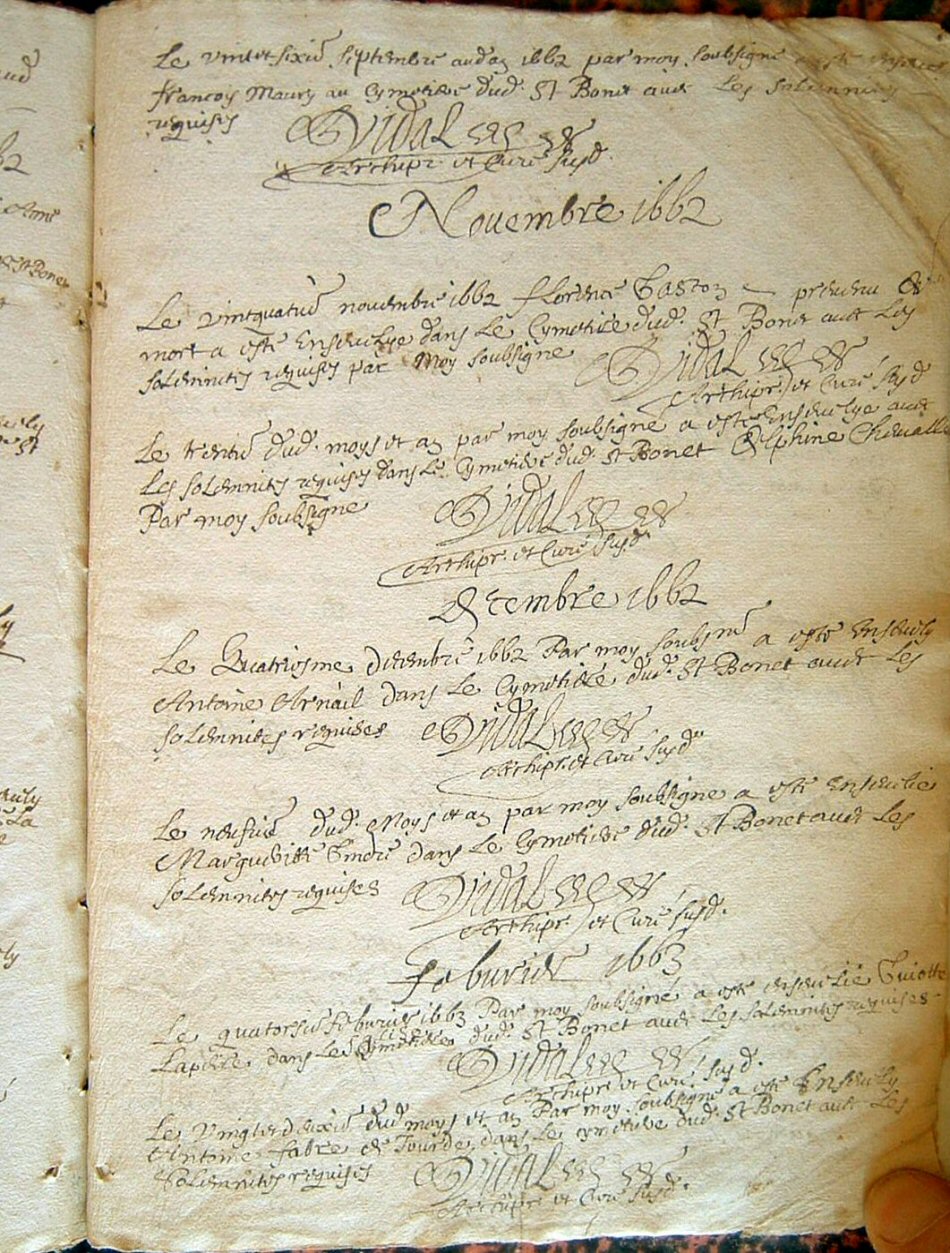 Le vintetsixie septembre aud an 1662 par moy soubsigne a este enseveli
francoys Maury au Cymetiere dud. St Bonet avec Les solemnites
requises
Vidal
Archipr. et Curé susd.
Novembre 1662
Le vintquatrie novembre 1662 florence Gaston prevenu de
mort a este Ensevelye dans Le Cymetiere dud. St Bonet avec Les
solemnites requises par Moy soubsigne
Vidal
Archipr. et Curé susd
Le trentie dud. moys et an par moy soubsigne a este Ensevelye avec
Les solemnites requises dans Le Cymetiere dud. St Bonet Delphine
Par moy soubsigne
Vidal
Archipr. et Curé susd.
Decembre 1662
Le Quatriesme decembre 1662 Par moy soubsne a este Ensevely
Antoine Arnail dans Le Cymetiere dud. St Bonet avec Les
solemnites requises
Vidal
Archipr. et Curé susd
Le neufvie dud. Moys et an par moy soubsigne a este Ensevelie
Marguerite dans Le Cymetiere dud. St Bonet avec Les
solemnites requises
Vidal
Archipr. et Curé susd.
febvrier 1663
Le quatorsie febvrier 1663 Par moy soubsigné a este ensevelie
dans Le Cymetiere dud. St Bonet avec Les solemnites requises
Vidal
Archipre et Curé susd.
Le Vingtedeuxie dud moys et an Par moy soubsigne a este Ensevely
Antoine fabre de dans Le cymetiere dud St Bonet avec Les
solemnites requises
Vidal
Archipre et Curé susd.